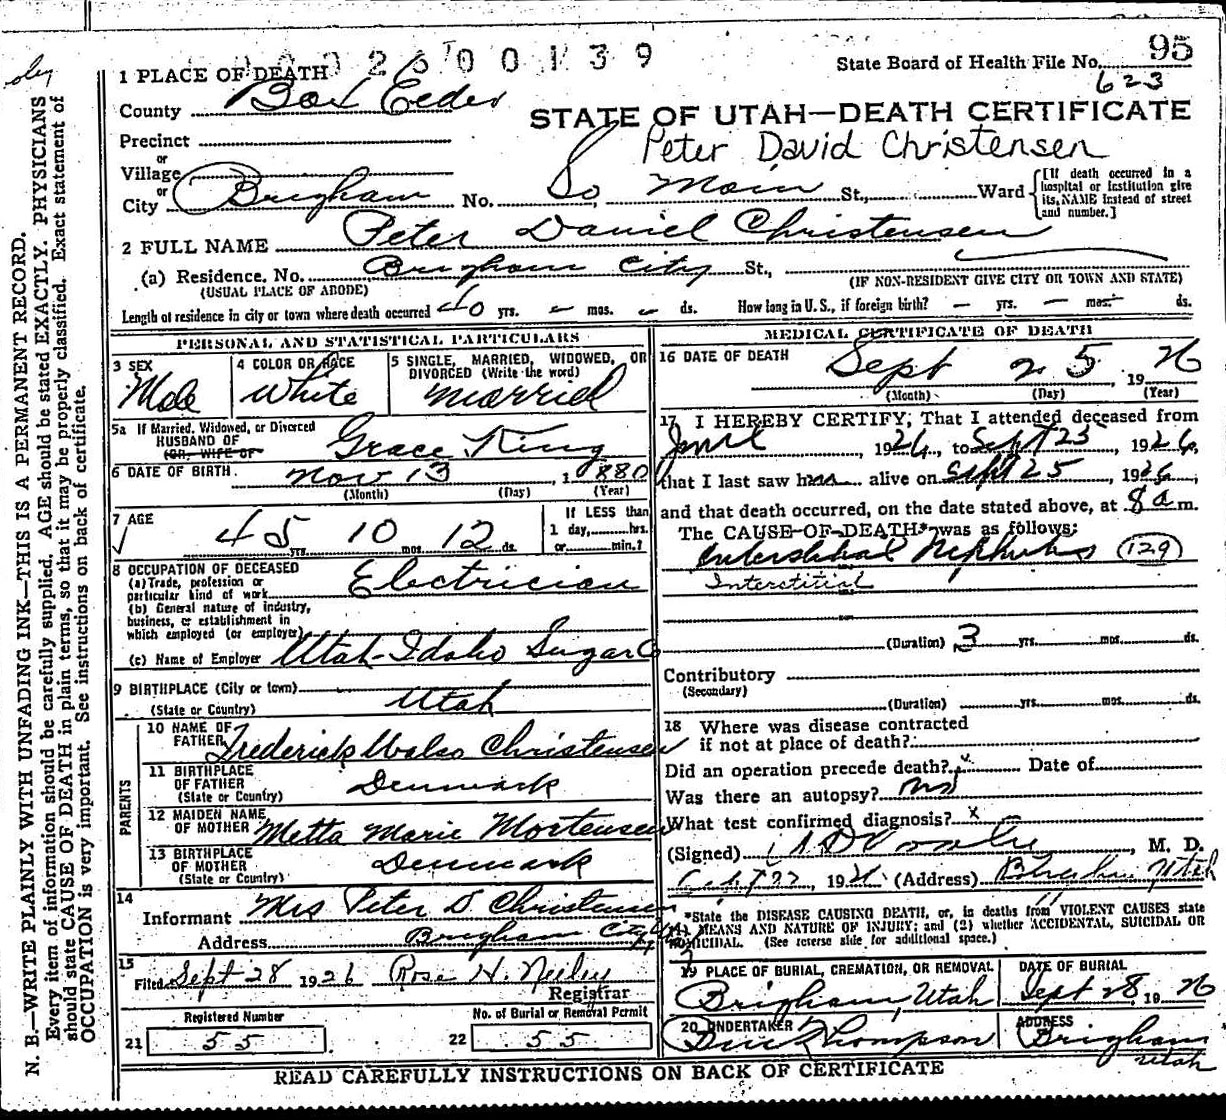 95
2600139
State Board of Health File No.
623
1 PLACE OF DEATH
County Box Elder
STATE OF UTAH—DEATH CERTIFICATE
Peter David Christensen
Precinct
or
Village
or
City Brigham No. So Main St., Ward
[If death occurred in a hospital or institution give its NAME instead of street and number.]
2 FULL NAME Peter Daniel Christensen
(a) Residence. No. Brigham City St.,
(USUAL PLACE OF ABODE) (IF NON-RESIDENT GIVE CITY OR TOWN AND STATE)
Length of residence in city or town where death occurred 40 yrs. – mos. – ds. How long in U.S., if foreign birth? – yrs. – mos. – ds.
PERSONAL AND STATISTICAL PARTICULARS
3 SEX
Male
4 COLOR OR RACE
White
5 SINGLE, MARRIED, WIDOWED, OR DIVORCED (Write the word)
Married
5a If Married, Widowed, or Divorced
HUSBAND OF
(OR, WIFE OF
Grace King
6 DATE OF BIRTH. Nov 13 1880
(Month) (Day) (Year)
7 AGE
45 yrs. 10 mos. 12 ds.
If LESS than
1 day, hrs.
or min.?
8 OCCUPATION OF DECEASED
(a) Trade, profession or
particular kind of work Electrician
(b) General nature of industry,
business, or establishment in
which employed (or employer)
(c) Name of Employer Utah-Idaho Sugar Co
9 BIRTHPLACE (City or town)
(State or Country) Utah
PARENTS
10 NAME OF
FATHER Frederick Christensen
11 BIRTHPLACE
OF FATHER
(State or Country) Denmark
12 MAIDEN NAME
OF MOTHER Metta Marie Mortensen
13 BIRTHPLACE
OF MOTHER
(State or Country) Denmark
14
Informant Mrs Peter D Christensen
Address Brigham City
15
Filed Sept 28 1926 Rose H. Neeley
Registrar
Registered Number
21 55
No. of Burial or Removal Permit
22 55
MEDICAL CERTIFICATE OF DEATH
16 DATE OF DEATH
Sept 25, 1926
(Month) (Day) (Year)
17 I HEREBY CERTIFY, That I attended deceased from
June, 1926, to Sept 25 1926,
that I last saw him alive on Sept 25, 1926,
and that death occurred, on the date stated above, at 8 a m.
The CAUSE OF DEATH* was as follows:
Interstitial Nephritis (129)
Interstitial
(Duration) 3 yrs. mos. ds.
Contributory
(Secondary)
(Duration) yrs. mos. ds.
18 Where was disease contracted
if not at place of death?
Did an operation precede death? x Date of
Was there an autopsy? no
What test confirmed diagnosis? x
(Signed) , M. D.
27, 1926 (Address) Brigham Utah
*State the DISEASE CAUSING DEATH, or, in deaths from VIOLENT CAUSES state
(1) MEANS AND NATURE OF INJURY; and (2) whether ACCIDENTAL, SUICIDAL OR
HOMICIDAL. (See reverse side for additional space.)
19 PLACE OF BURIAL, CREMATION, OR REMOVAL
Brigham, Utah
DATE OF BURIAL
Sept 28 1926
20 UNDERTAKER
Thompson
ADDRESS
Brigham
Utah
READ CAREFULLY INSTRUCTIONS ON BACK OF CERTIFICATE
N. B.—WRITE PLAINLY WITH UNFADING INK—THIS IS A PERMANENT RECORD.
Every item of information should be carefully supplied. AGE should be stated EXACTLY. PHYSICIANS
should state CAUSE OF DEATH in plain terms, so that it may be properly classified. Exact statement of
OCCUPATION is very important. See instructions on back of certificate.